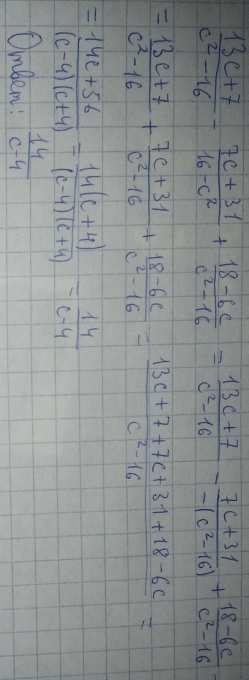 (13c+7)/(c²-16) - (7c+31)/(16-c²) + (18-6c)/(c²-16) = (13c+7)/(c²-16) - (7c+31)/(-(c²-16)) + (18-6c)/(c²-16) =
= (13c+7)/(c²-16) + (7c+31)/(c²-16) + (18-6c)/(c²-16) = (13c+7+7c+31+18-6c)/(c²-16) =
= (14c+56)/((c-4)(c+4)) = (14(c+4))/((c-4)(c+4)) = 14/(c-4)
Ответ: 14/(c-4)